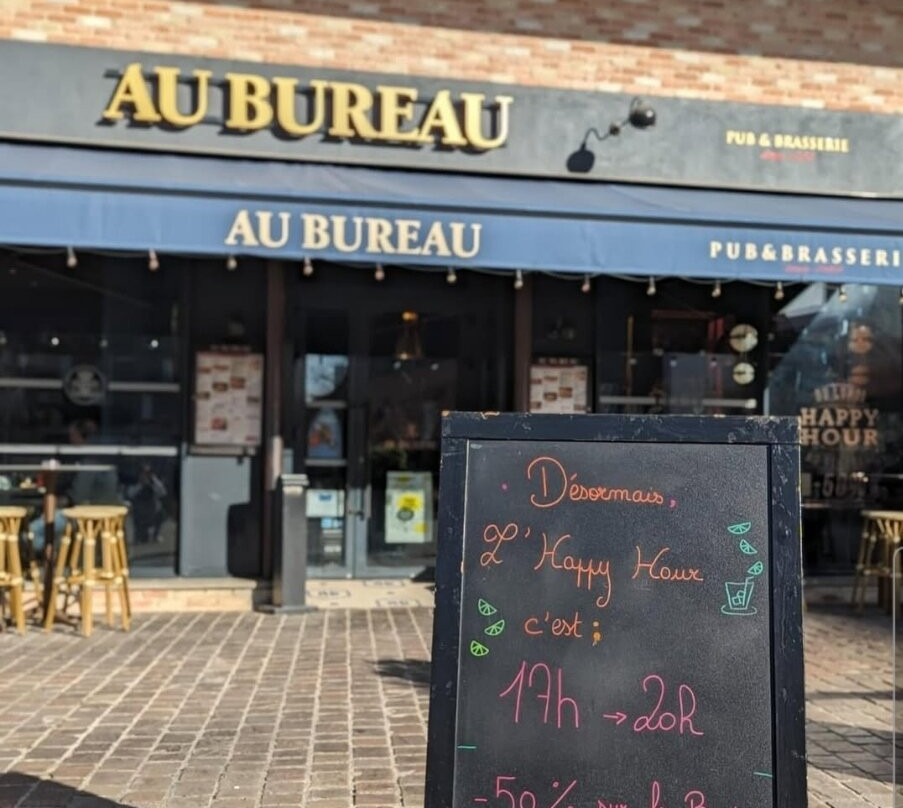 AU BUREAU
PUB & BRASSERIE
AU BUREAU
PUB&BRASSERI
HAPPY
HOUR
Désormais,
L'Happy Hour
c'est :
17h → 20h
-50% sur la B